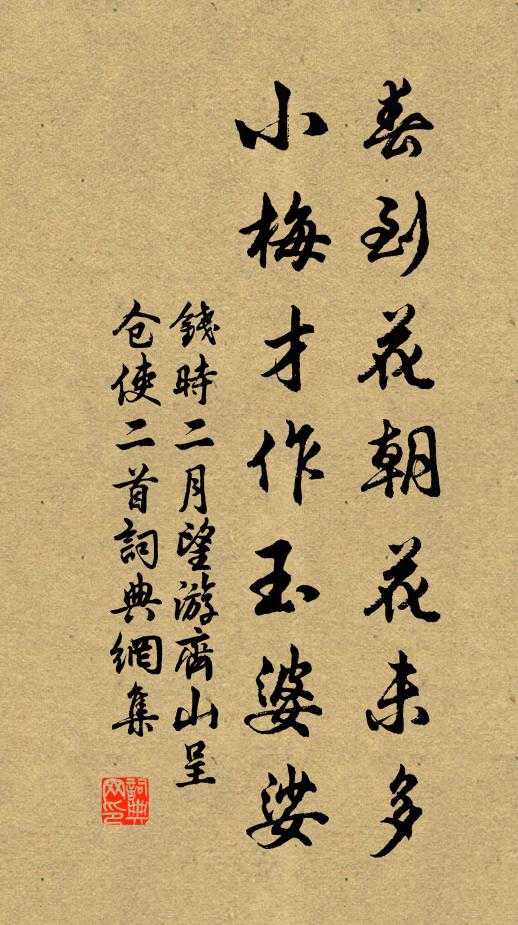 春到花朝花未多
小梅才作玉婆娑
錢時二月望游齊山呈
仓使二首詞典網集
詞典
网印